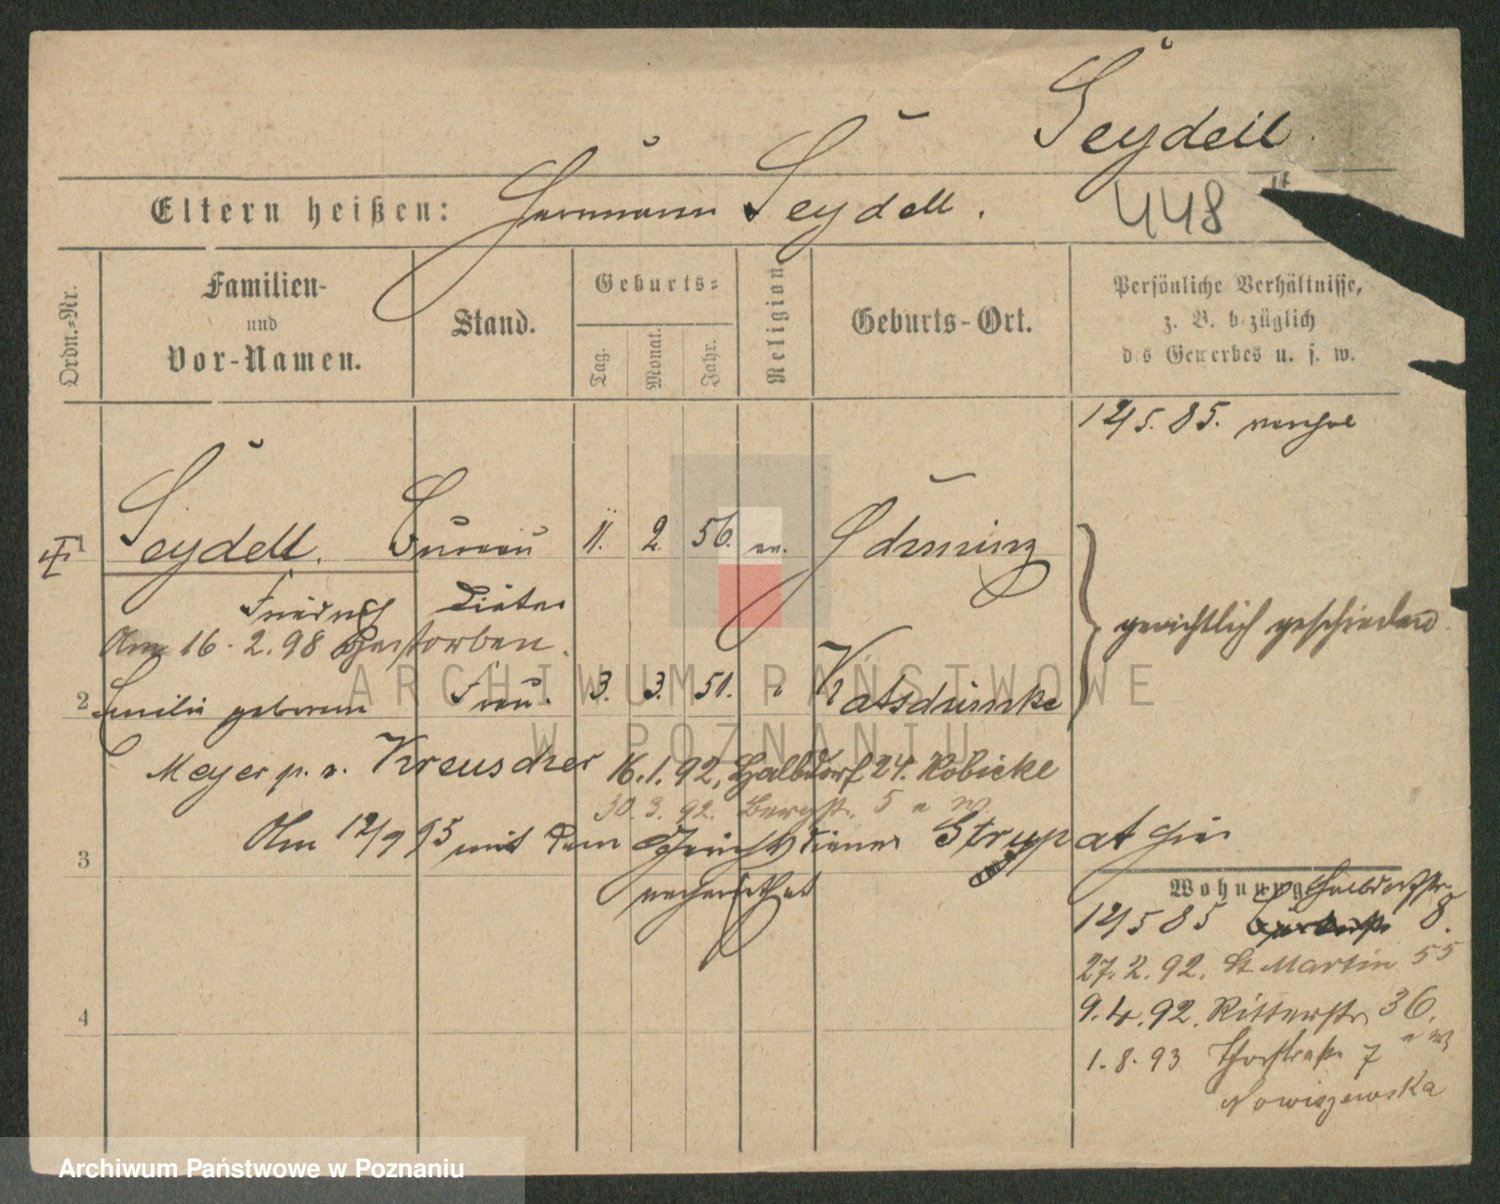 Seydell
Eltern heißen: Hermann Seydell.
448
Ordn.-Nr.
Familien-
und
Vor-Namen.
Stand.
Geburts-
Tag.
Monat.
Jahr.
Religion
Geburts-Ort.
Persönliche Verhältnisse,
z. B. bezüglich
des Gewerbes u. s. w.
12/5. 85.
1 Seydell. Bureau 11. 2. 56. ev.
Friedrich Diätar
gerichtlich geschieden
Am 16. 2. 98 gestorben.
2 Emilie geborene Frau. 3. 3. 51. "
Meyer p. v. Kreuscher 16.1.92. Halbdorf 24. Kobicke
30. 3. 92. Bergstr. 5
Am 12/9 95 mit dem Gerichtsdiener Strupat hier
verheirathet
3
Wohnung Halbdorfstr.
12/5 85 8.
27. 2. 92. St Martin 55
9. 4. 92. Ritterstr. 36.
4
1. 8. 93 Thorstraße 7
Nowiszewska
ARCHIWUM PAŃSTWOWE
W POZNANIU
Archiwum Państwowe w Poznaniu